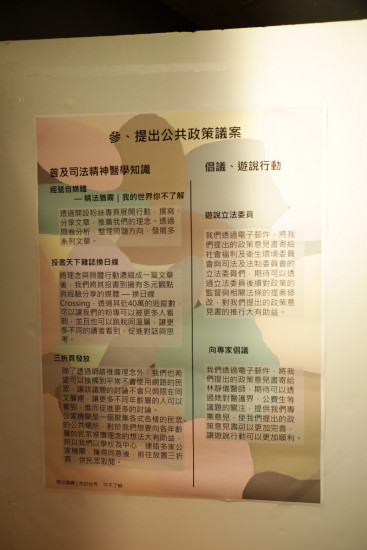 參、提出公共政策議案
普及司法精神醫學知識
經營自媒體
— 精法猶霧 | 我的世界你不了解
透過開設粉絲專頁展開行動,撰寫、
分享文章,推廣我們的理念。透過
問卷分析,整理問題方向,發展多
系列文章。
投書天下雜誌換日線
將理念與具體行動濃縮成一篇文章
後,我們將其投書到擁有多元觀點
與經驗分享的媒體 — 換日線
Crossing。透過其近40萬的追蹤數
可以讓我們的粉專可以被更多人看
到,並且也可以跳脫同溫層,讓更
多不同的讀者看到,促進對話與思
考。
三折頁發放
除了透過網絡推廣理念外,我們也希
望可以接觸到平常不會使用網路的民
眾,讓該議題的討論不會只侷限在同
文層裡,讓更多不同年齡層的人可以
看到,進而促進更多的討論。
公家機關是一個聚集各式各樣的民眾
的公共場所,對於我們想要向各年齡
層的民眾推廣理念的想法大有助益,
所以我們以學校為中心,連結多家公
家機關,獲得同意後,前往放置三折
頁,供民眾取閱。
精法猶霧 | 我的世界 你不了解
倡議、遊說行動
遊說立法委員
我們透過電子郵件,將我
們提出的政策意見書寄給
社會福利及衛生環境委員
會與司法及法制委員會的
立法委員們,期待可以透
過立法委員後續對政策的
監督與相關法條的提案修
改,對我們提出的政策意
見書的推行大有助益。
向專家倡議
我們透過電子郵件,將我
們提出的政策意見書寄給
林靜儀醫師,期待可以透
過她對醫護界、公費生等
議題的關注,提供我們專
業意見,使我們提出的政
策意見書可以更加完善,
讓遊說行動可以更加順利。